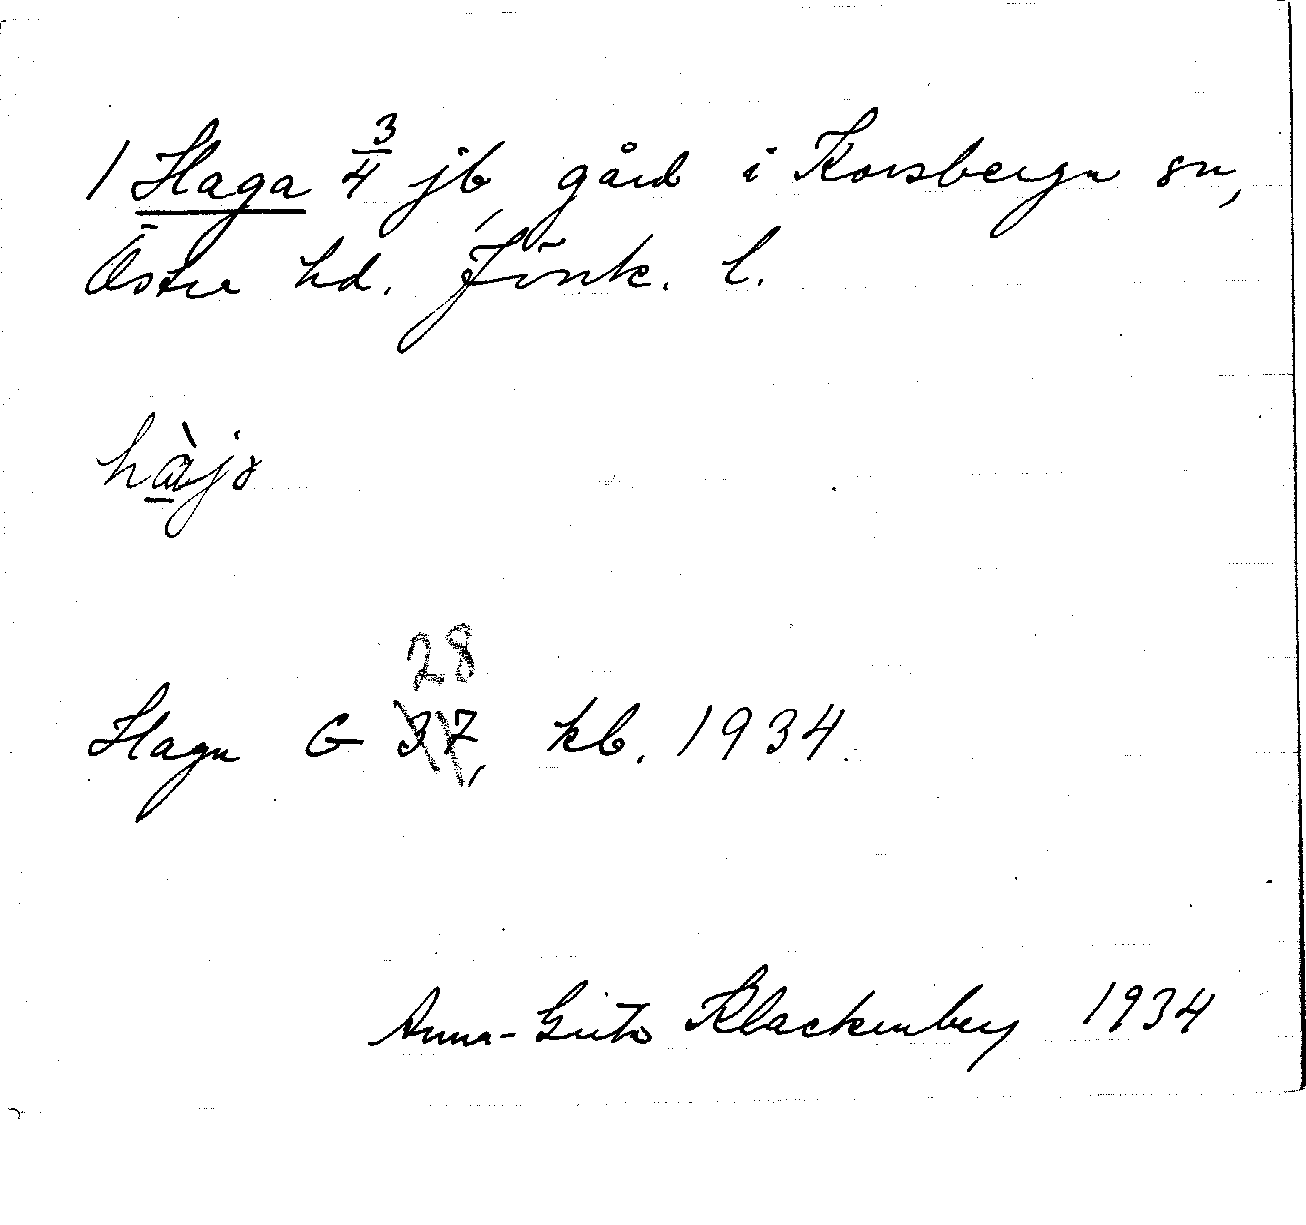 1 Haga 3/4 jb, gård i Korsberga sn,
Östra hd. Jönk. l.
hàjɑ
28
Haga G 37, kb. 1934.
Anna-Greta Klackenberg 1934